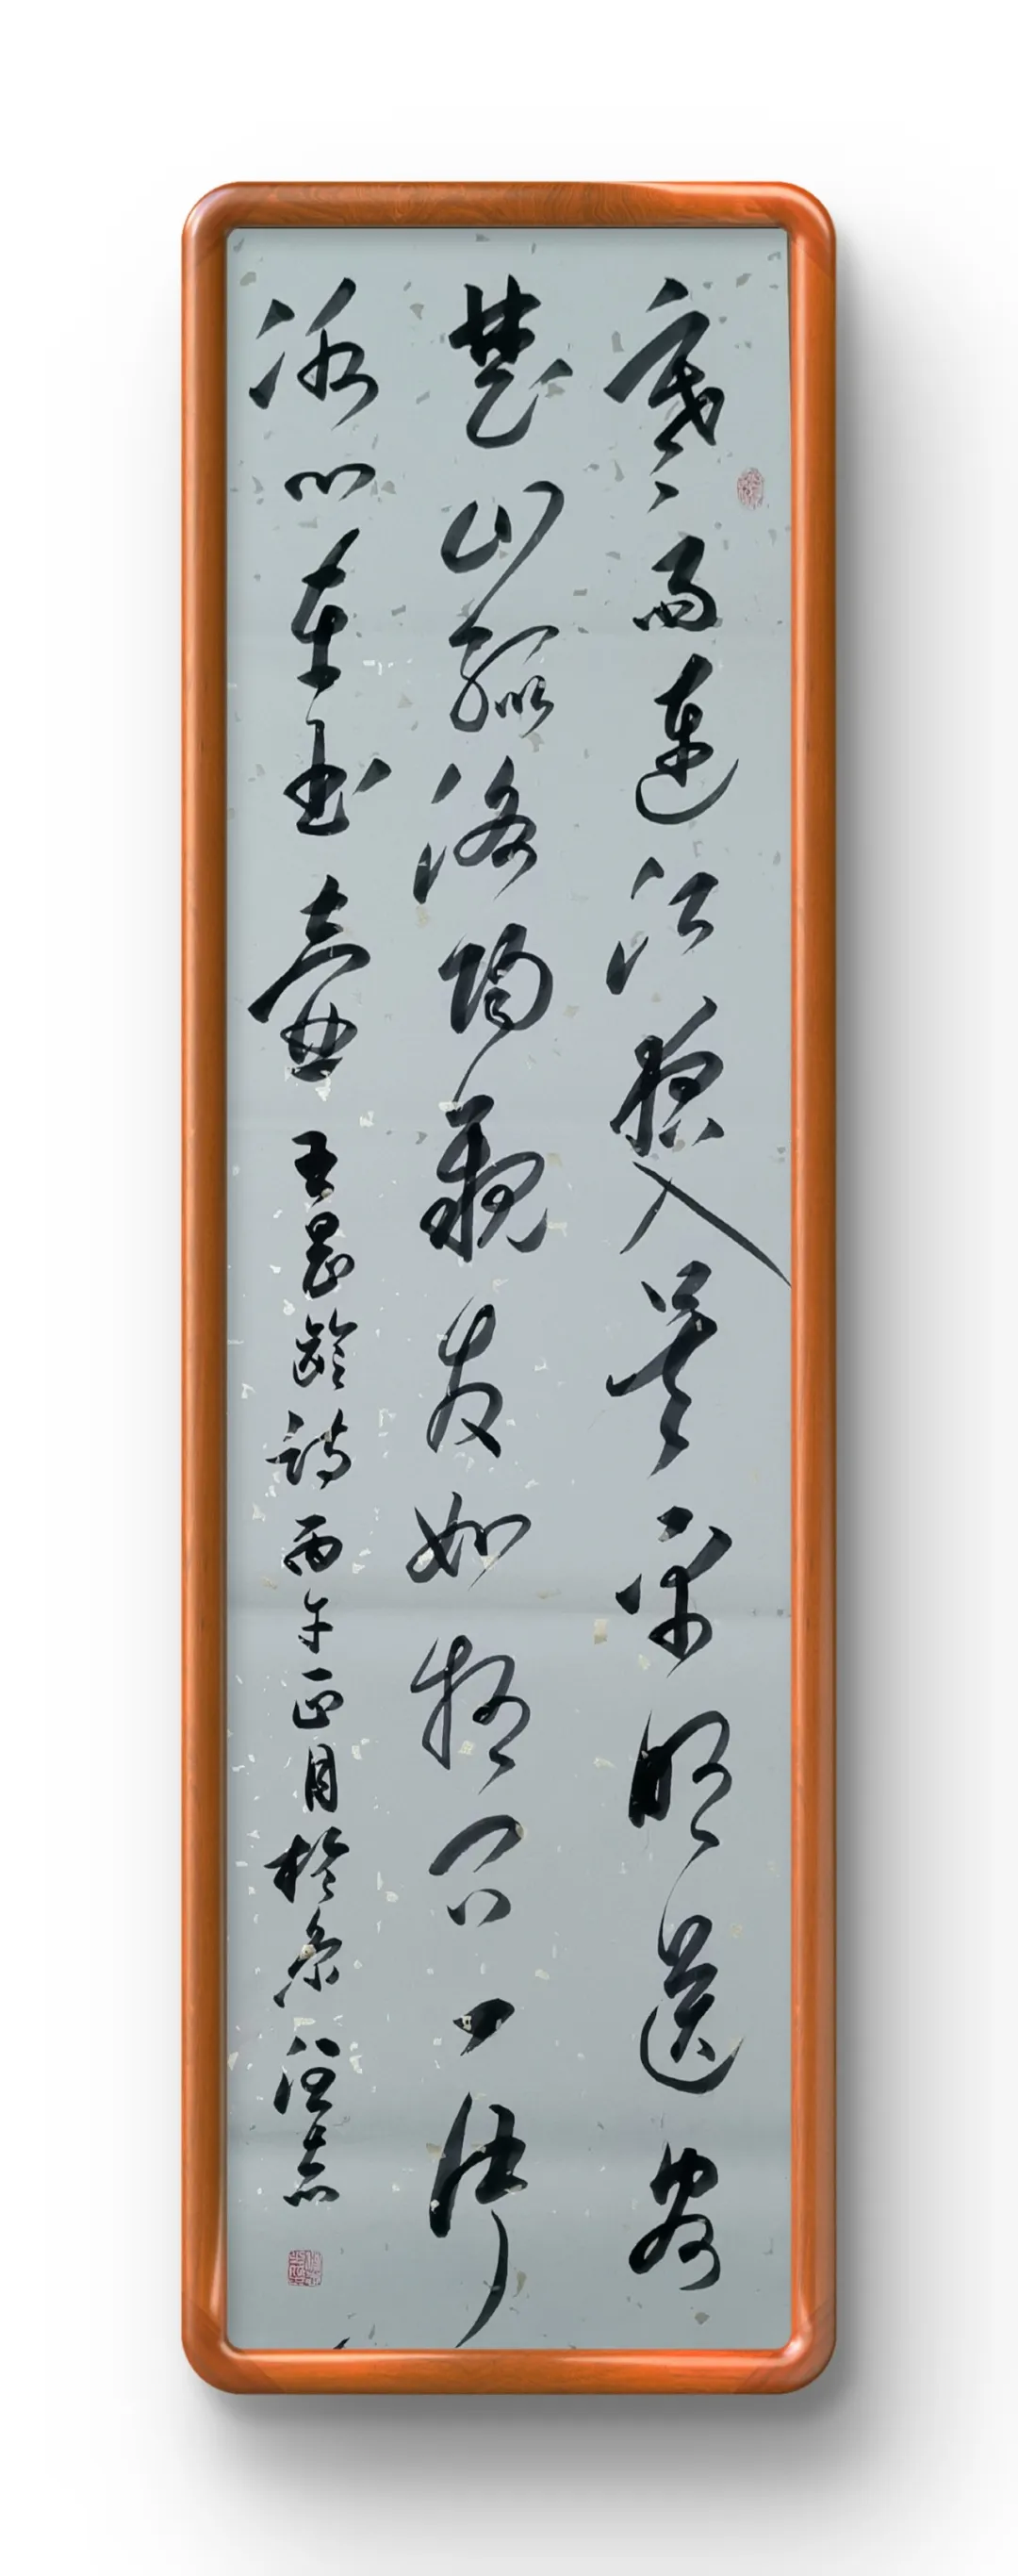 寒雨連江夜入吳平明送客
楚山孤洛陽親友如相問一片
冰心在玉壺王昌齡詩丙午正月於京汪志